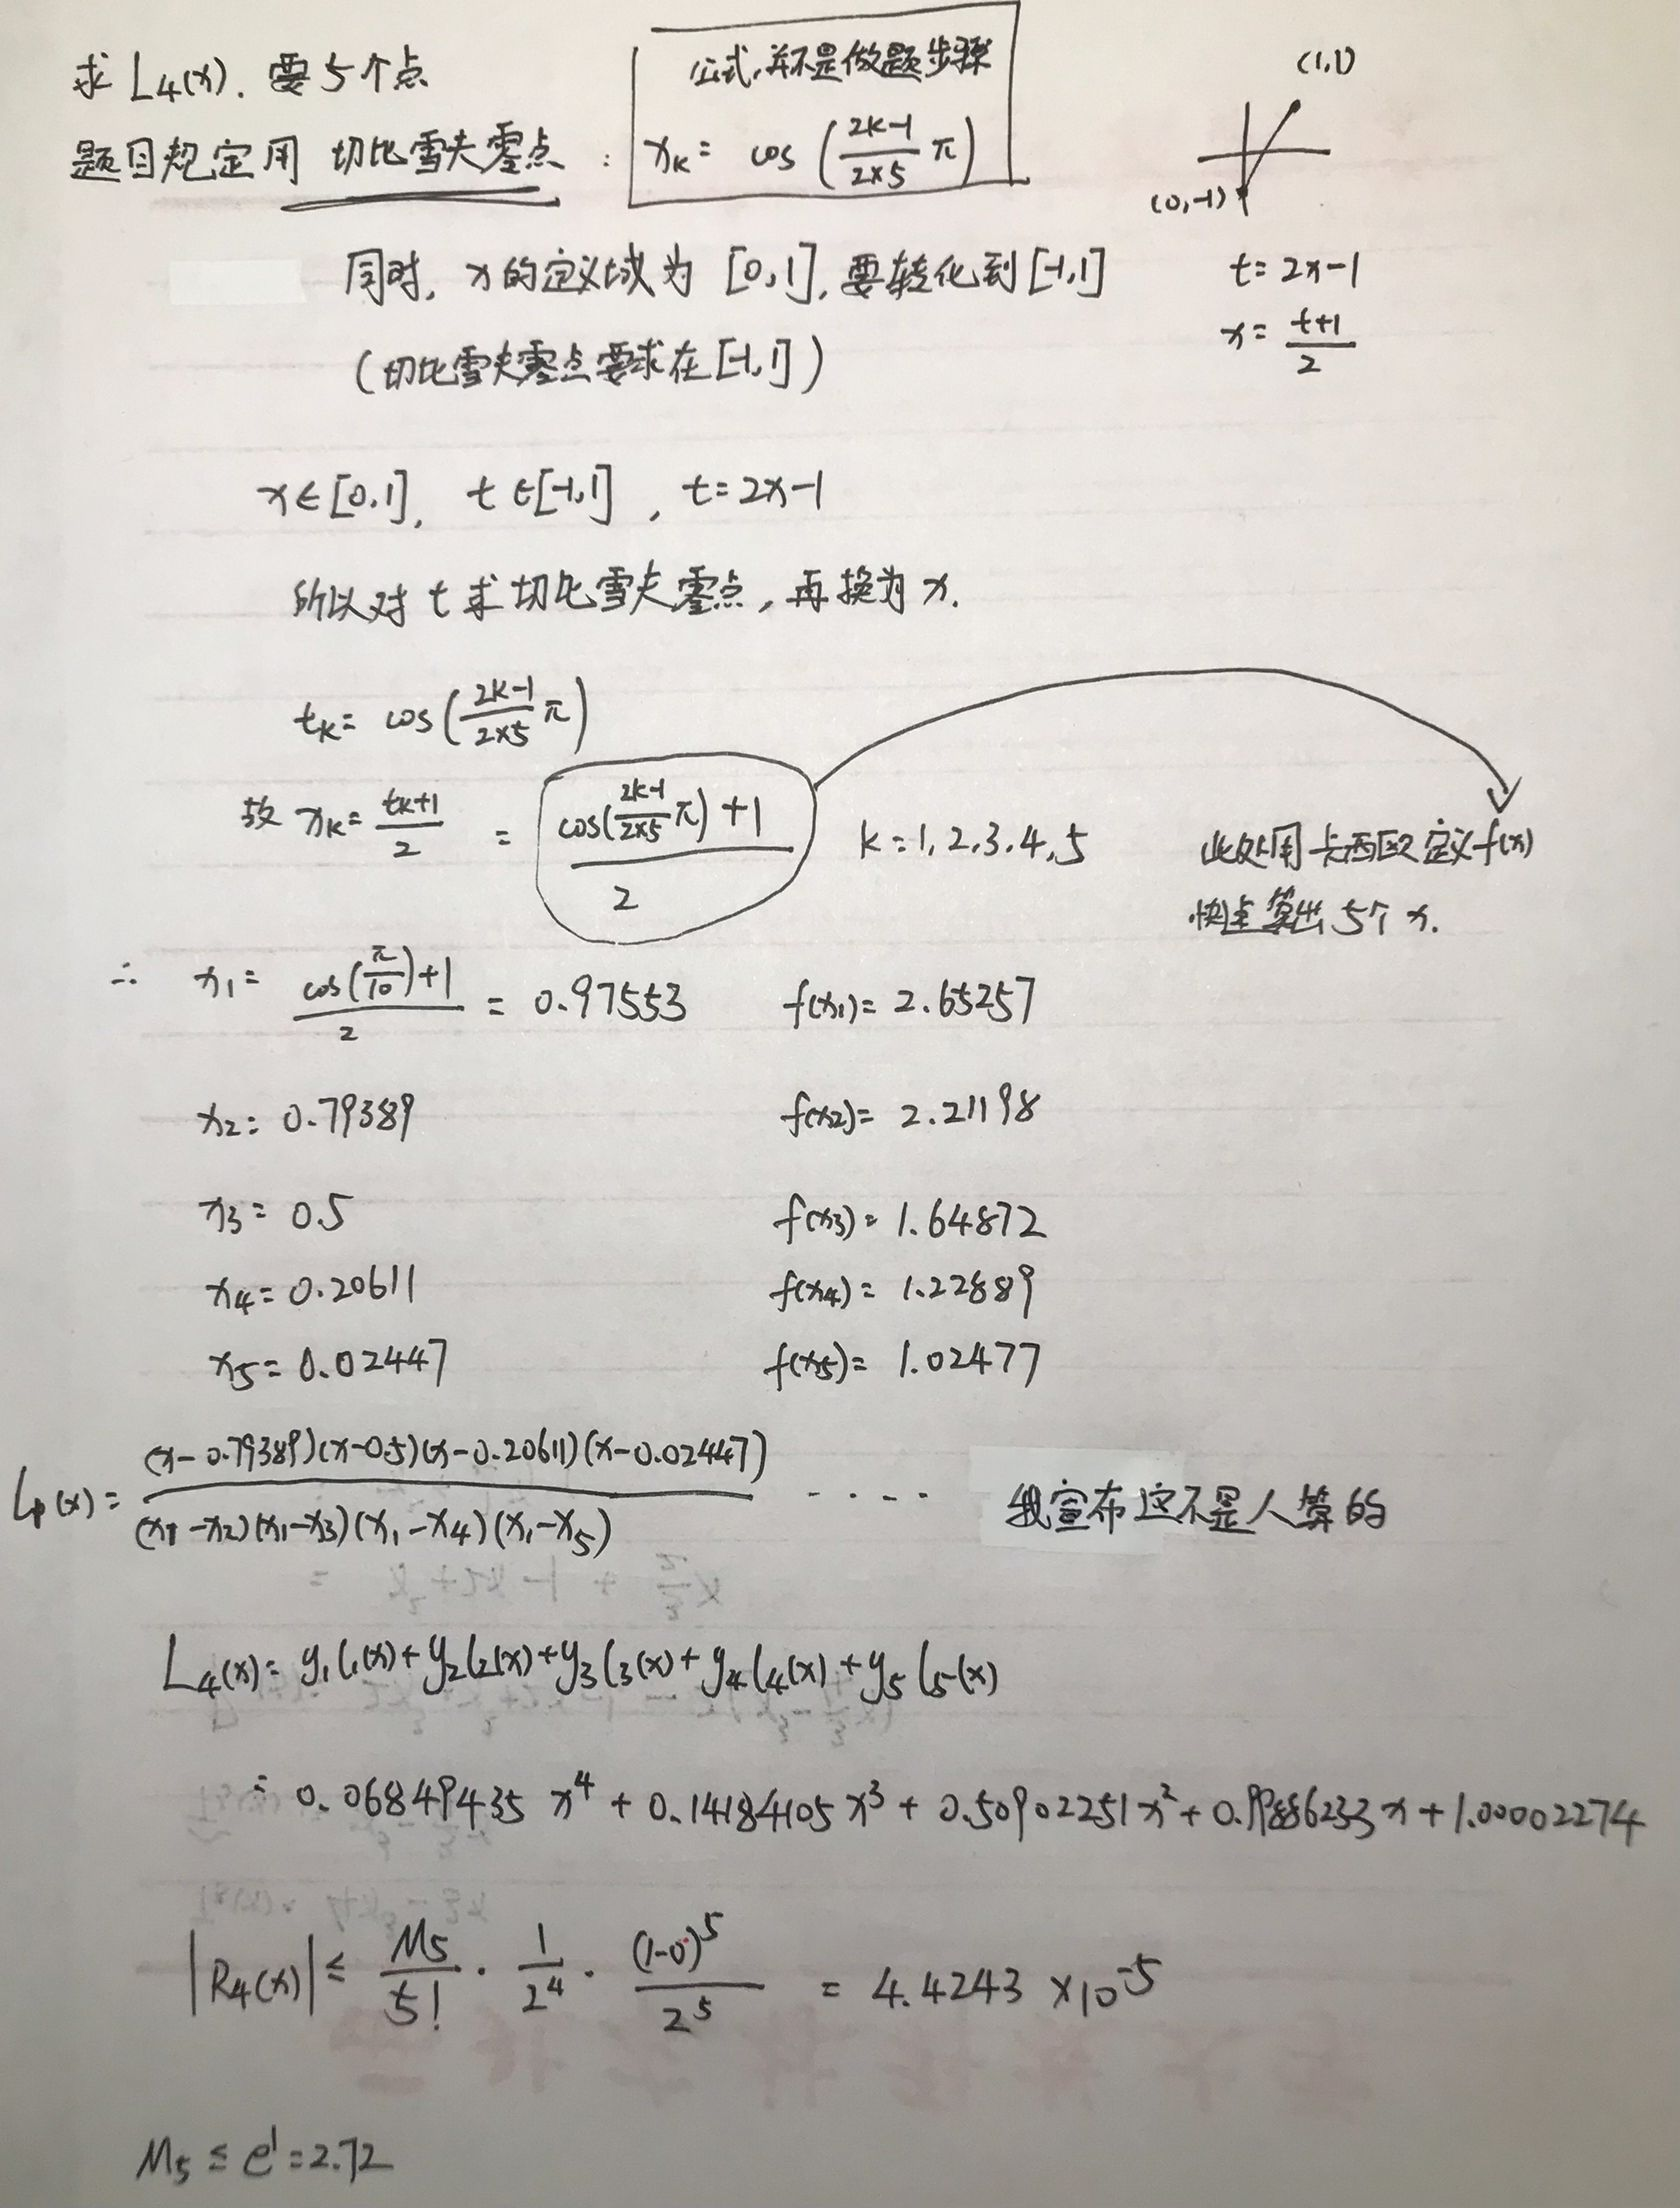 求 L₄(x). 要5个点
公式,并不是做题步骤
题目规定用 切比雪夫零点 : xₖ = cos ( (2k-1)/(2×5) π )
(1,1)
(0,-1)
同时, x的定义域为 [0,1], 要转化到[-1,1]
t = 2x-1
(切比雪夫零点要求在[-1,1])
x = (t+1)/2
x∈[0,1], t∈[-1,1], t=2x-1
所以对 t 求切比雪夫零点, 再换为 x.
tₖ = cos( (2k-1)/(2×5) π )
故 xₖ = (tₖ+1)/2 = (cos( (2k-1)/(2×5) π ) +1)/2 k=1,2,3,4,5
此处用卡西欧定义f(x)
快速算出5个 x.
∴ x₁ = (cos(π/10)+1)/2 = 0.97553 f(x₁)= 2.65257
x₂ = 0.79389 f(x₂)= 2.21198
x₃ = 0.5 f(x₃)= 1.64872
x₄ = 0.20611 f(x₄)= 1.22889
x₅ = 0.02447 f(x₅)= 1.02477
(x) = (x-0.79389)(x-0.5)(x-0.20611)(x-0.02447) / (x₁-x₂)(x₁-x₃)(x₁-x₄)(x₁-x₅) ···· 我宣布这不是人算的
L₄(x) = y₁l₁(x)+y₂l₂(x)+y₃l₃(x)+y₄l₄(x)+y₅l₅(x)
= 0.06849435 x⁴ + 0.14184105 x³ + 0.50902251 x² + 0.99886233 x + 1.00002274
|R₄(x)| ≤ M₅/5! · 1/2⁴ · (1-0)⁵/2⁵ = 4.4243 ×10⁻⁵
M₅ ≤ e¹ = 2.72